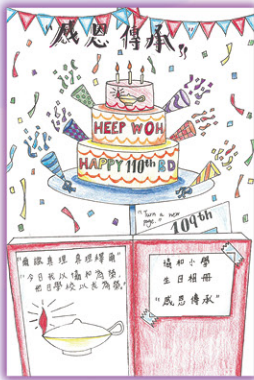 "感恩傳承"
HEEP WOH
HAPPY 110th BD
"Turn a new
page."
109th
"爾識真理 真理釋爾"
"今日我以協和為榮，
他日學校以我為榮"
協和小學
生日相冊
"感恩傳承"